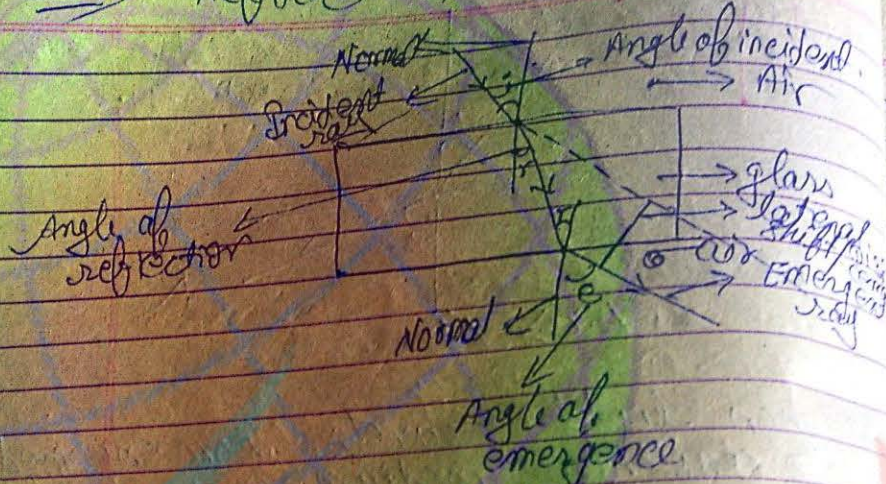 Normal
Angle of incident
Air
Incident
ray
i
r
glass
Angle of
refrection
air
Emergent
ray
e
Normal
Angle of
emergence